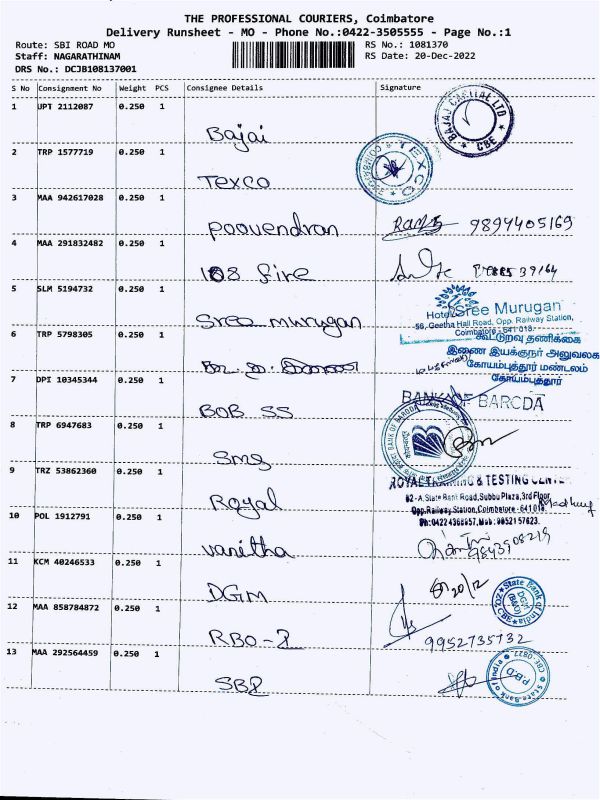 THE PROFESSIONAL COURIERS, Coimbatore
Delivery Runsheet - MO - Phone No.:0422-3505555 - Page No.:1
Route: SBI ROAD MO
RS No.: 1081370
Staff: NAGARATHINAM
RS Date: 20-Dec-2022
DRS No.: DCJB108137001
S No Consignment No Weight PCS Consignee Details Signature
1 UPT 2112087 0.250 1
Bajai
BAJAJ CAPITAL LTD CBE
2 TRP 1577719 0.250 1
Texco
TEXCO
3 MAA 942617028 0.250 1
Poovendran 9894405169
4 MAA 291832482 0.250 1
108 fire
5 SLM 5194732 0.250 1
Sree murugan
Hotel Sree Murugan
56, Geetha Hall Road, Opp. Railway Station,
Coimbatore - 641 018.
6 TRP 5798305 0.250 1
கூட்டுறவு தணிக்கை
இணை இயக்குநர் அலுவலக
கோயம்புத்தூர் மண்டலம்
கோயம்புத்தூர்
7 DPI 10345344 0.250 1
BOB SS
BANK OF BARODA
8 TRP 6947683 0.250 1
SMS
BANK OF BARODA
9 TRZ 53862360 0.250 1
Royal
ROYAL TRAINING & TESTING CENTRE
62-A, State Bank Road, Subbu Plaza, 3rd Floor
Opp. Railway Station, Coimbatore - 641 018.
Ph: 0422 4368957, Mob: 9952157623.
10 POL 1912791 0.250 1
Vanitha
11 KCM 40246533 0.250 1
DGM
20/12
State Bank of India
DGM
(B&O)
CBE
12 MAA 858784872 0.250 1
RBO-2
9952735732
13 MAA 292564459 0.250 1
SBI
State Bank of India
P.B.D